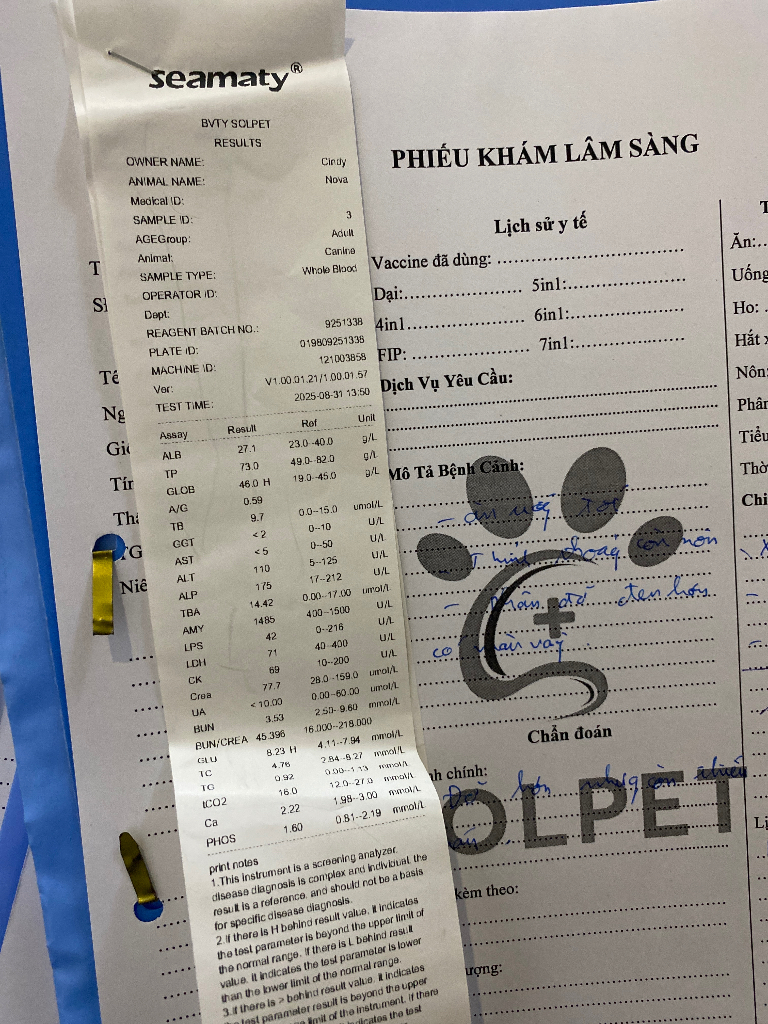 seamaty®
BVTY SOLPET
RESULTS
OWNER NAME: Cindy
ANIMAL NAME: Nova
Medical ID:
SAMPLE ID: 3
AGEGroup: Adult
Animal: Canine
SAMPLE TYPE: Whole Blood
OPERATOR ID:
Dept:
REAGENT BATCH NO.: 9251338
PLATE ID: 019809251338
MACHINE ID: 121003858
Ver: V1.00.01.21/1.00.01.57
TEST TIME: 2025-08-31 13:50
Assay Result Ref Unit
ALB 27.1 23.0--40.0 g/L
TP 73.0 49.0--82.0 g/L
GLOB 46.0 H 19.0--45.0 g/L
A/G 0.59
TB 9.7 0.0--15.0 umol/L
GGT <2 0--10 U/L
AST <5 0--50 U/L
ALT 110 5--125 U/L
ALP 175 17--212 U/L
TBA 14.42 0.00--17.00 umol/L
AMY 1485 400--1500 U/L
LPS 42 0--216 U/L
LDH 71 40--400 U/L
CK 69 10--200 U/L
Crea 77.7 28.0--159.0 umol/L
UA <10.00 0.00--60.00 umol/L
BUN 3.53 2.50--9.60 mmol/L
BUN/CREA 45.396 16.000--218.000
GLU 8.23 H 4.11--7.94 mmol/L
TC 4.76 2.84--8.27 mmol/L
TG 0.92 0.00--1.13 mmol/L
tCO2 16.0 12.0--27.0 mmol/L
Ca 2.22 1.98--3.00 mmol/L
PHOS 1.60 0.81--2.19 mmol/L
print notes
1.This instrument is a screening analyzer,
disease diagnosis is complex and individual, the
result is a reference, and should not be a basis
for specific disease diagnosis.
2.If there is H behind result value. It indicates
the test parameter is beyond the upper limit of
the normal range. If there is L behind result
value. It indicates the test parameter is lower
than the lower limit of the normal range.
3.If there is > behind result value. It indicates
test parameter result is beyond the upper
limit of the instrument. If there
indicates the test
PHIẾU KHÁM LÂM SÀNG
Lịch sử y tế
Vaccine đã dùng:
Dại: 5in1:
4in1 6in1:
FIP: 7in1:
Dịch Vụ Yêu Cầu:
Mô Tả Bệnh Cảnh:
- ăn uống tốt
Thỉnh thoảng còn nôn
- phân đã đen hơn
Chẩn đoán
chính:
OLPET
kèm theo:
Ăn:
Uống
Ho:
Hắt
Nôn:
Phân
Tiểu